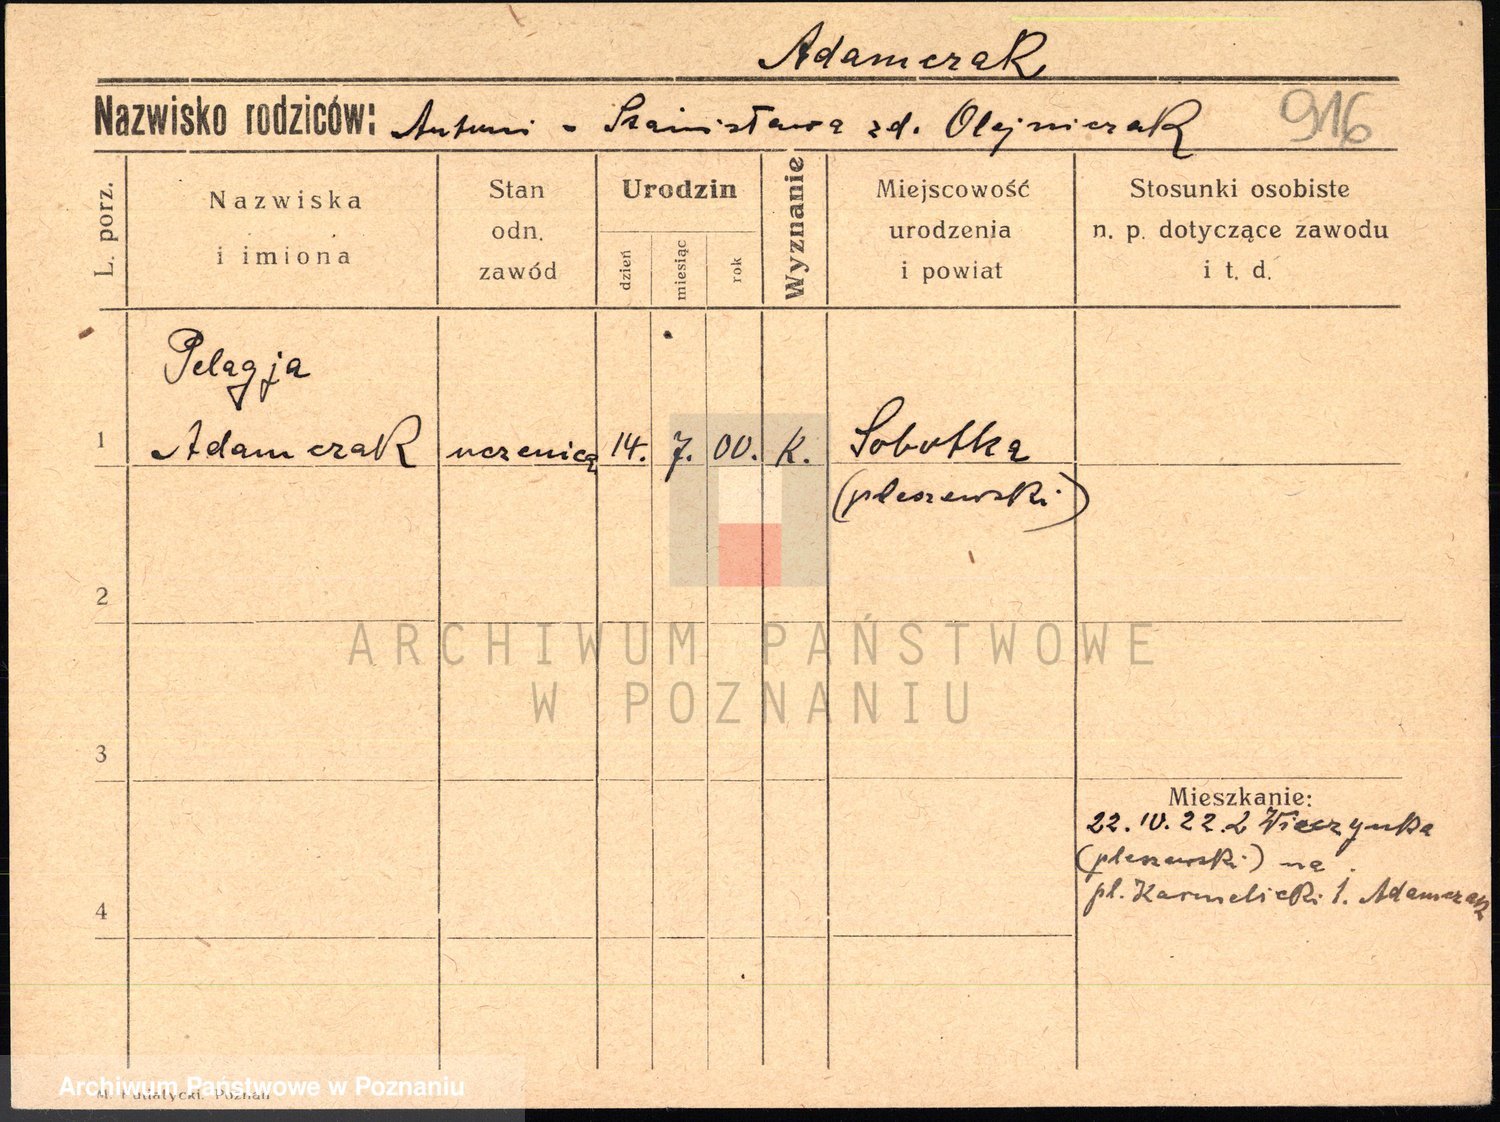 Adamczak
Nazwisko rodziców: Antoni - Stanisława zd. Olejniczak 916
L. porz.
Nazwiska i imiona
Stan odn. zawód
Urodzin
dzień
miesiąc
rok
Wyznanie
Miejscowość urodzenia i powiat
Stosunki osobiste n. p. dotyczące zawodu i t. d.
Pelagja
1 Adamczak uczenicą 14. 7. 00. K. Sobotka
(pleszewski)
2
ARCHIWUM PAŃSTWOWE
W POZNANIU
3
Mieszkanie:
22.IV.22. z Wieczynka
(pleszewski) na
4 pl. Karmelicki 1. Adamczak
Archiwum Państwowe w Poznaniu
Poznań